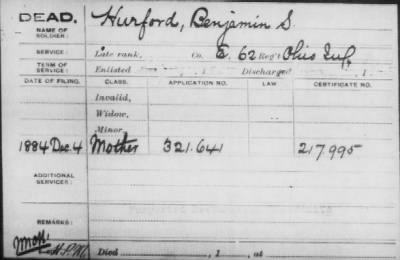 DEAD. Hurford, Benjamin S.
NAME OF SOLDIER:
SERVICE: Late rank, Co. E, 62 Reg't Ohio Inf.
TERM OF SERVICE: Enlisted , 1 Discharged , 1
DATE OF FILING. CLASS. APPLICATION NO. LAW CERTIFICATE NO.
Invalid,
Widow,
Minor,
1884 Dec. 4 Mother 321.641 217995
ADDITIONAL SERVICES:
REMARKS:
Died , 1 , at